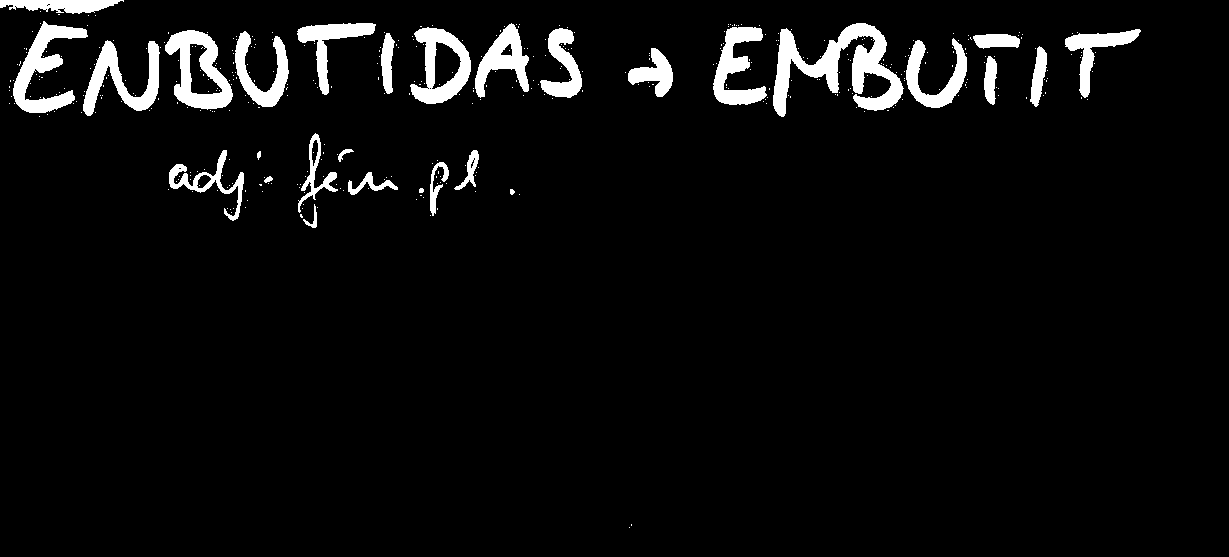 ENBUTIDAS → EMBUTIT
adj. fém. pl.